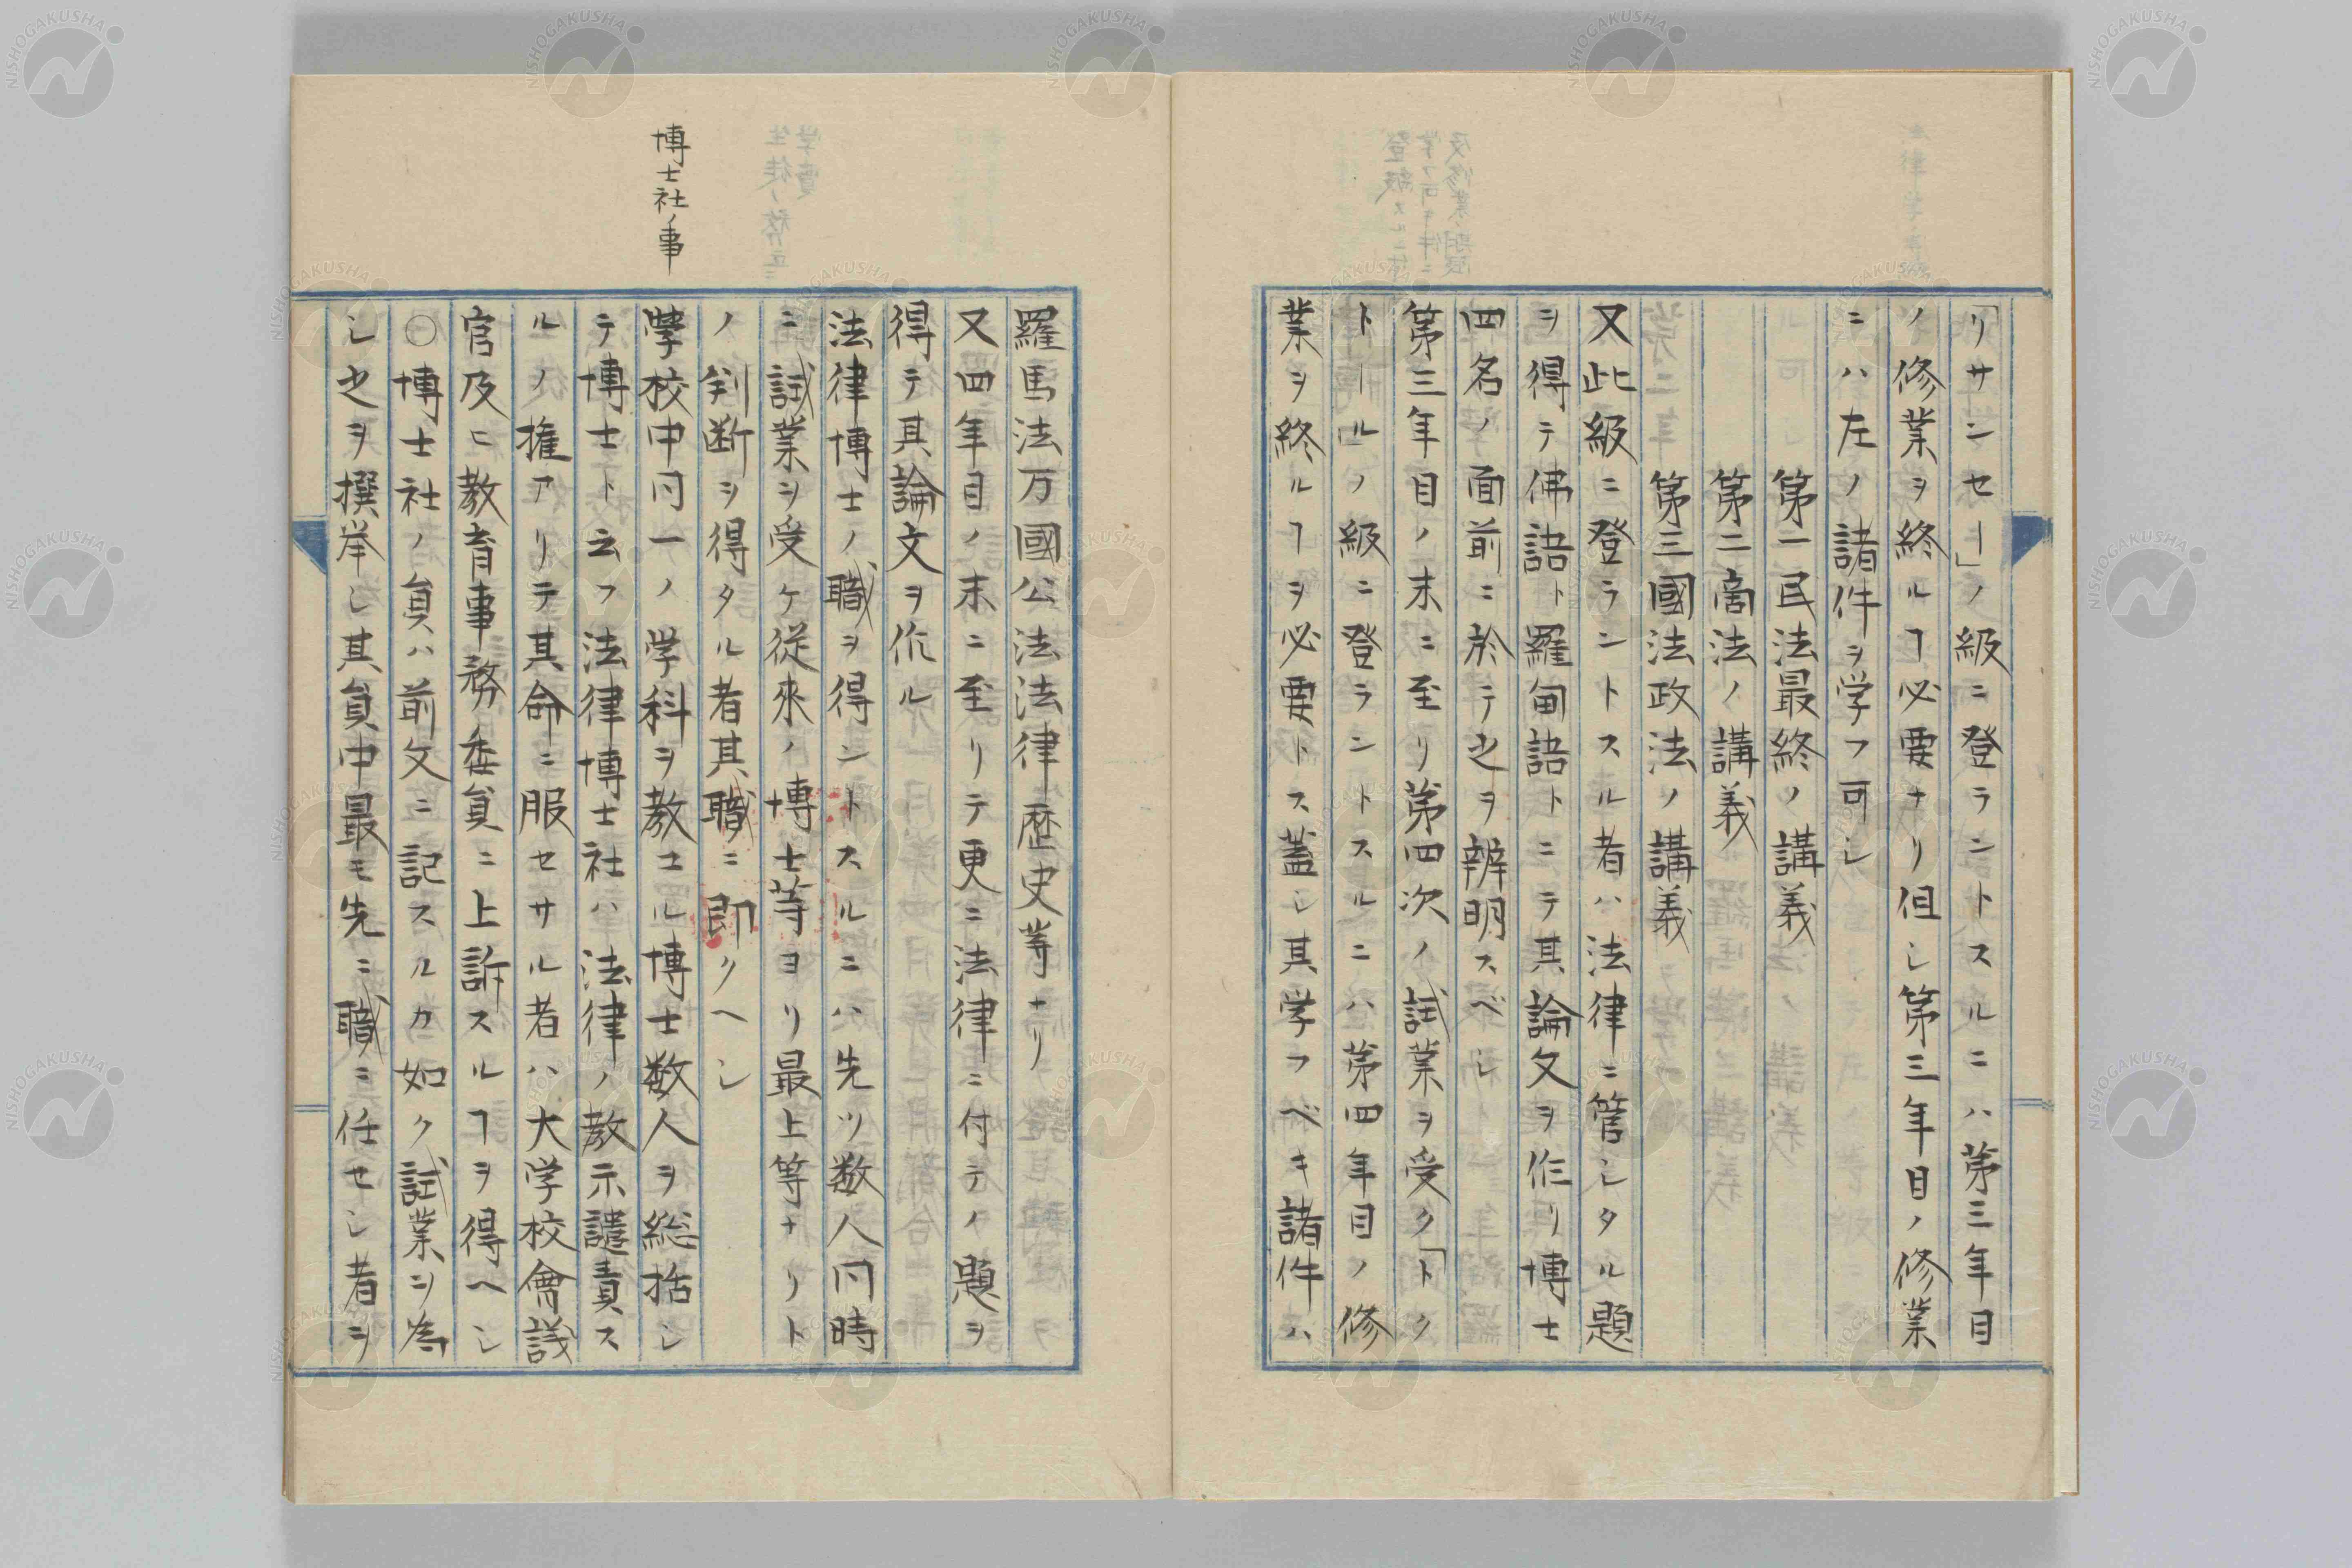 「リサンセー」ノ級ニ登ラントスルニハ第三年目
ノ修業ヲ終ルヿ必要ナリ但シ第三年目ノ修業
ニハ左ノ諸件ヲ学フ可シ
第一民法最終ノ講義
第二商法ノ講義
第三國法政法ノ講義
又此級ニ登ラントスル者ハ法律ニ管シタル題
ヲ得テ佛語ト羅甸語トニテ其論文ヲ作リ博士
四名ノ面前ニ於テ之ヲ辨明スベシ
第三年目ノ末ニ至リ第四次ノ試業ヲ受ク「トク
トール」ノ級ニ登ラントスルニハ第四年目ノ修
業ヲ終ルヿヲ必要トス蓋シ其学フベキ諸件ハ
羅馬法万國公法法律歴史等ナリ
又四年目ノ末ニ至リテ更ニ法律ニ付テノ題ヲ
得テ其論文ヲ作ル
法律博士ノ職ヲ得ントスルニハ先ツ数人同時
ニ試業ヲ受ケ従來ノ博士等ヨリ最上等ナリト
ノ判断ヲ得タル者其職ニ即クヘシ
博士社ノ事
學校中同一ノ学科ヲ教ユル博士数人ヲ総括シ
テ博士ト云フ法律博士社ハ法律ノ教示譴責ス
ルノ権アリテ其命ニ服セサル者ハ大学校會議
官及ヒ教育事務委員ニ上訴スルヿヲ得ヘシ
〇博士社ノ員ハ前文ニ記スルカ如ク試業ヲ為
シ之ヲ撰挙シ其員中最モ先ニ職ニ任セシ者ヲ
NISHOGAKUSHA